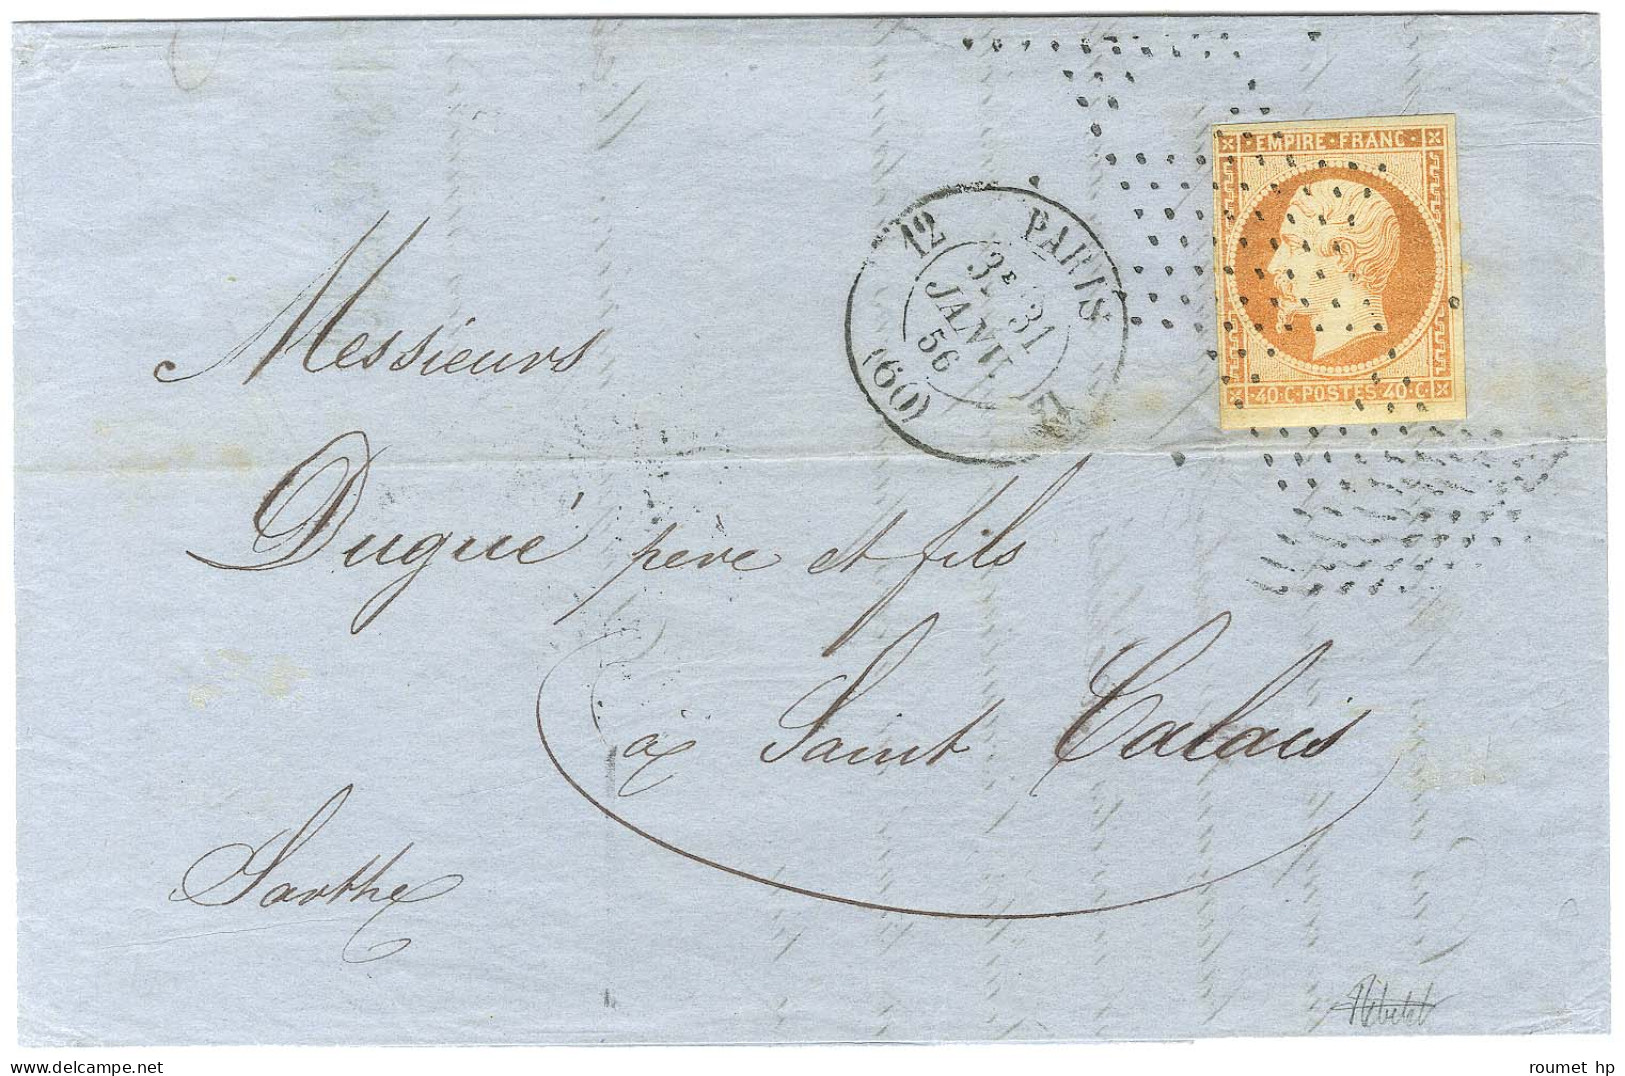 EMPIRE·FRANC·
40·C·POSTES·40·C·
12 PARIS 12
3E 31
JANV.
56
(60)
Messieurs
Dugué père et fils
à Saint Calais
Sarthe
roumet hp